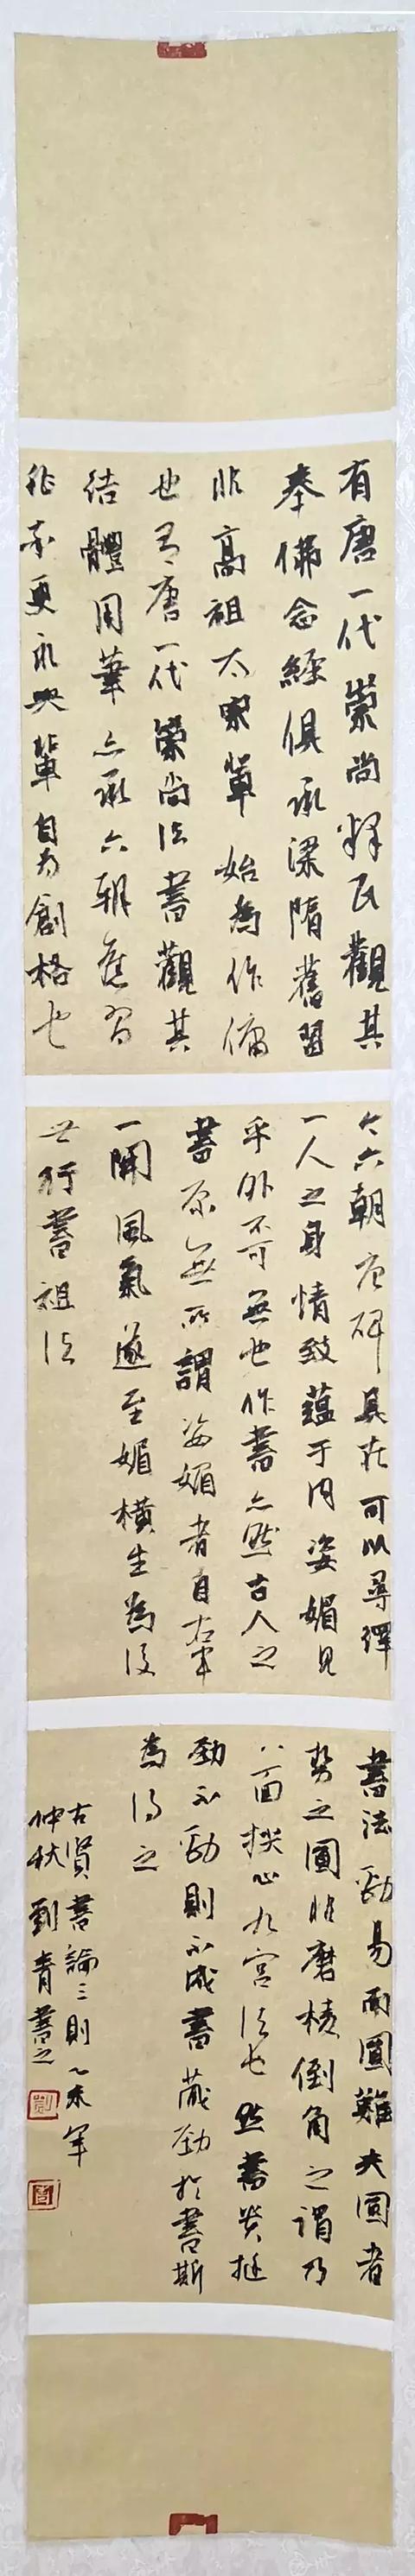 有唐一代崇尚釋氏觀其
奉佛念經俱承梁隋舊習
非高祖太宗輩始為作俑
也有唐一代崇尚法書觀其
結體用筆亦承六朝舊習
非率更永興輩自為創格也
今六朝唐碑具在可以尋繹
一人之身情致蘊于內姿媚見
乎外不可無也作書亦然古人之
書原無所謂姿媚者自右軍
一開風氣遂至媚橫生為後
世行書祖法
書法勁易而圓難夫圓者
勢之圓非磨棱倒角之謂乃
八面拱心九宮法也然書貴挺
勁不勁則不成書藏勁於書斯
為得之
古賢書論三則乙未年
仲秋劉青書之